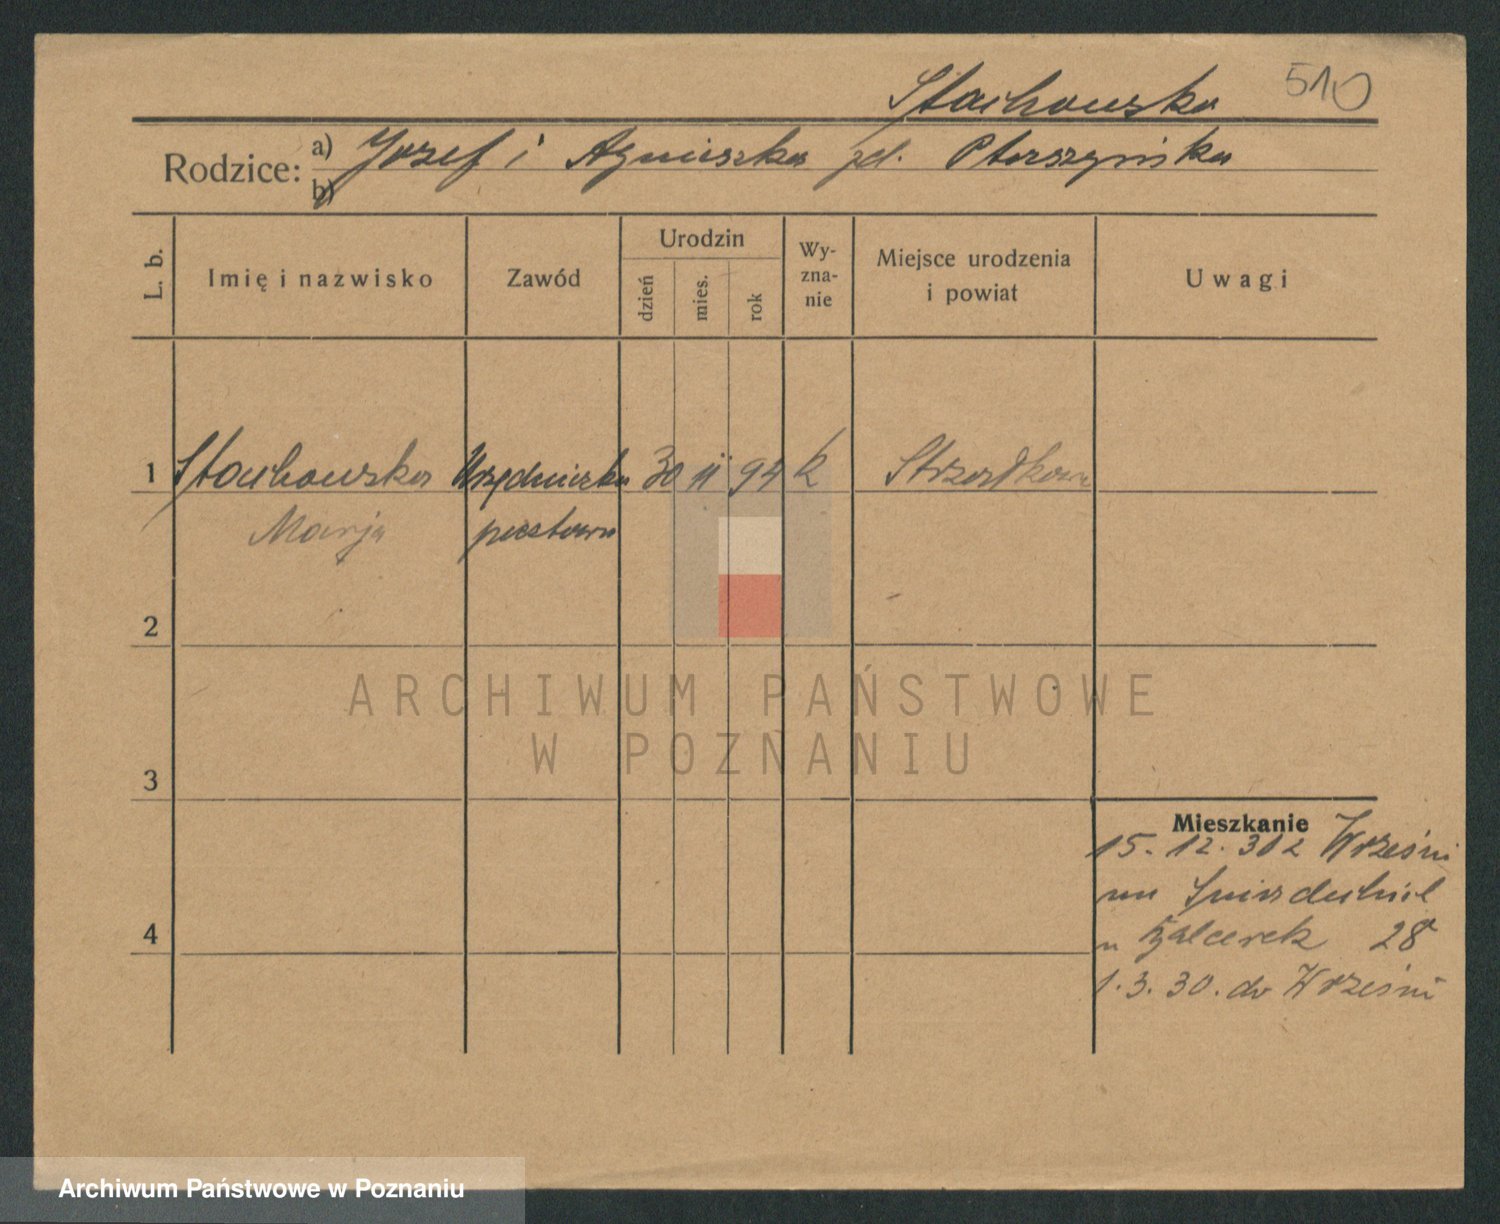 Stachowska 510
Rodzice: a) Józef i Agnieszka zd.
b)
L. b. Imię i nazwisko Zawód Urodzin dzień mies. rok Wy-zna-nie Miejsce urodzenia i powiat Uwagi
1 Stachowska Urzędniczka 30 11 94 k Strzałkowo
Marja pocztowa
2
ARCHIWUM PAŃSTWOWE
W POZNANIU
3
Mieszkanie
15. 12. Wrześni
4
28
1. 3. 30. do Wrześni
Archiwum Państwowe w Poznaniu